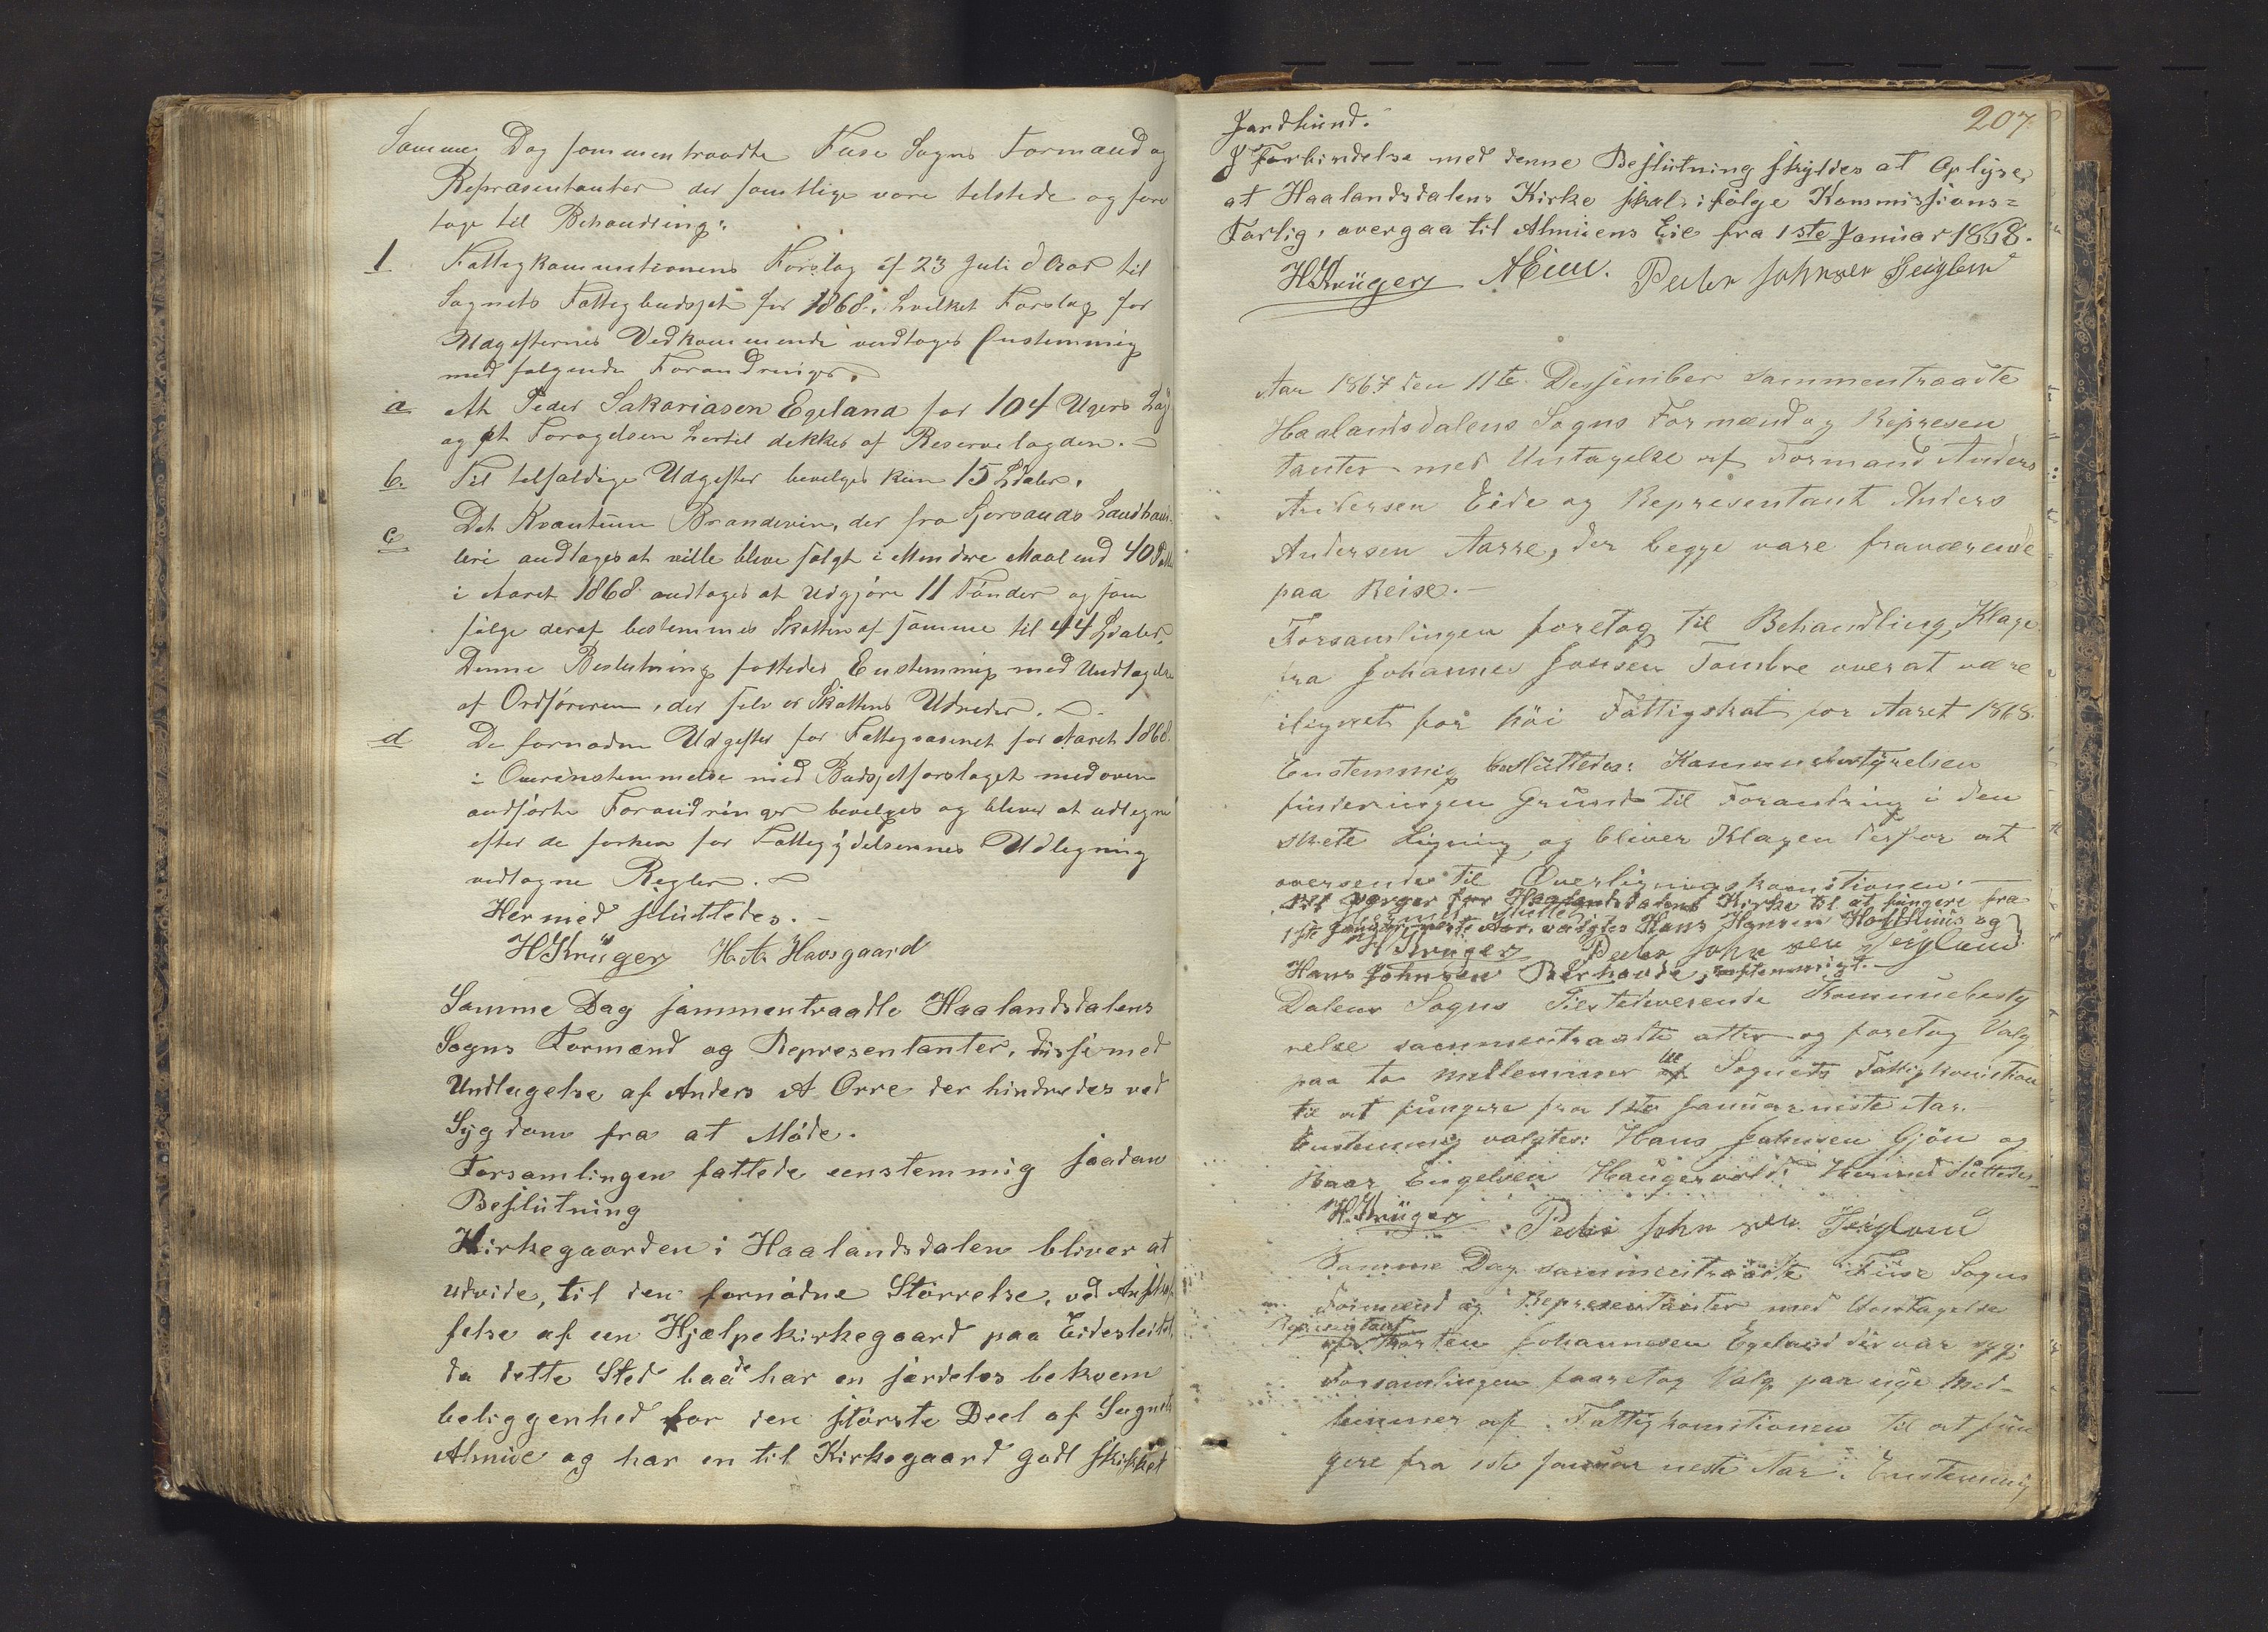 Samme Dag sammentraadte Fuse Sogns Formænd og
Repræsentanter der samtlige vare tilstede og fore
toge til Behandling:
1 Fattigkommisionens Forslag af 23 Juli d Aar til
Sognets Fattigbudsjet for 1868, hvilket Forslag for
Udgifternes Vedkommende vedtoges Enstemmig
med følgende Forandringer.
a At Peder Sakariasen Egeland får 104 Ugers Lægd
og at Forøgelsen hertil dekkes af Reservelægden. -
b. Til tilfældige Udgifter bevelges kun 15 Spdaler.
c Det Kvantum Brændevin, der fra Gjersands Landhand
leri andtages at ville blive solgt i Mindre Maal end 40 Potter
i Aaret 1868 andtages at Udgjøre 11 Tønder og som
følge deraf bestemmes Skatten af samme til 44 Spdaler.
Denne Beslutning fattedes Enstemmig med Undtagelse
af Ordføreren, der selv er Skattens Udreder. -
d De fornødne Udgifter for Fattigvæsenet for Aaret 1868.
i Overenstemmelse med Budsjetforslaget med oven
andførte Forandringer bevelges og bliver at udlegne
efter de forhen for Fattigydelsernes Udlegning
vedtagne Regler. -
Hermed sluttedes. -
HKrüger H. A. Havsgaard
Samme Dag sammentraadte Haalandsdalens
Sogns Formænd og Representanter, disse med
Undtagelse af Anders A Orre der hindredes ved
Sygdom fra at Møde.
Forsamlingen fattede eenstemmig saadan
Beslutning
Kirkegaarden i Haalandsdalen bliver at
udvide, til den fornødne Størrelse, ved Anskaf
felse af een Hjælpekirkegaard paa Eidesleitet,
da dette Sted baade har en særdeles bekvem
beliggenhed for den største Deel af Sognets
Almue og har en til Kirkegaard godt skikket
207.
Jordbund.
I Forbindelse med denne Beslutning skyldes at Oplyse,
at Haalandsdalens Kirke skal ifølge Kommissions=
Forlig, overgaa til Almuens Eie fra 1ste Januar 1868.
HKrüger AEide. Peder Johnsen Teigland
Aar 1867 den 11te Dessember sammentraadte
Haalandsdalens Sogns Formænd og Represen
tanter med Untagelse af Formand Anders
Andersen Eide og Representant Anders
Andersen Aarre, der begge vare fraværende
paa Reise. -
Forsamlingen foretog til Behandling, Klage
fra Johannes Jonsen Tombre over at være
ilignet for høi Fattigskat for Aaret 1868.
Enstemmig besluttedes: Kommunebestyrelsen
finder ingen Grund til Forandring i den
skete Ligning og bliver Klagen derfor at
oversende til Overligningskomitionen. -
Til Værger for Haalandsdalens Kirke til at fungere fra
Hermed sluttet
1ste Januar neste Aar, valgtes Hans Hansen Holdhuus og
H Krüger Peder Johnsen Teigland
Hans Johnsen Berhovde, enstemmigt.
Dalens Sogns Tilstedeverende Kommunebesty
relse sammentraadte atter og foretog Valg
paa to medlemmer til Sognets Fattigkomition
til at fungere fra 1ste Januar neste Aar.
Enstemmig valgtes: Hans Johnsen Gjøn og
Haar Engelsen Haugervold. Hermed sluttedes
H. Krüger Peder Johnsen Teigland
Samme Dag sammentraadte Fuse Sogns
Formænd og Representanter med Undtagelse
Representant
af Morten Johannesen Egeland der var syg;
Forsamlingen foaretog Valg paa nye Med-
lemmer af Fattigkomitionen til at fun
gere fra 1ste Januar neste Aar. Enstemmig